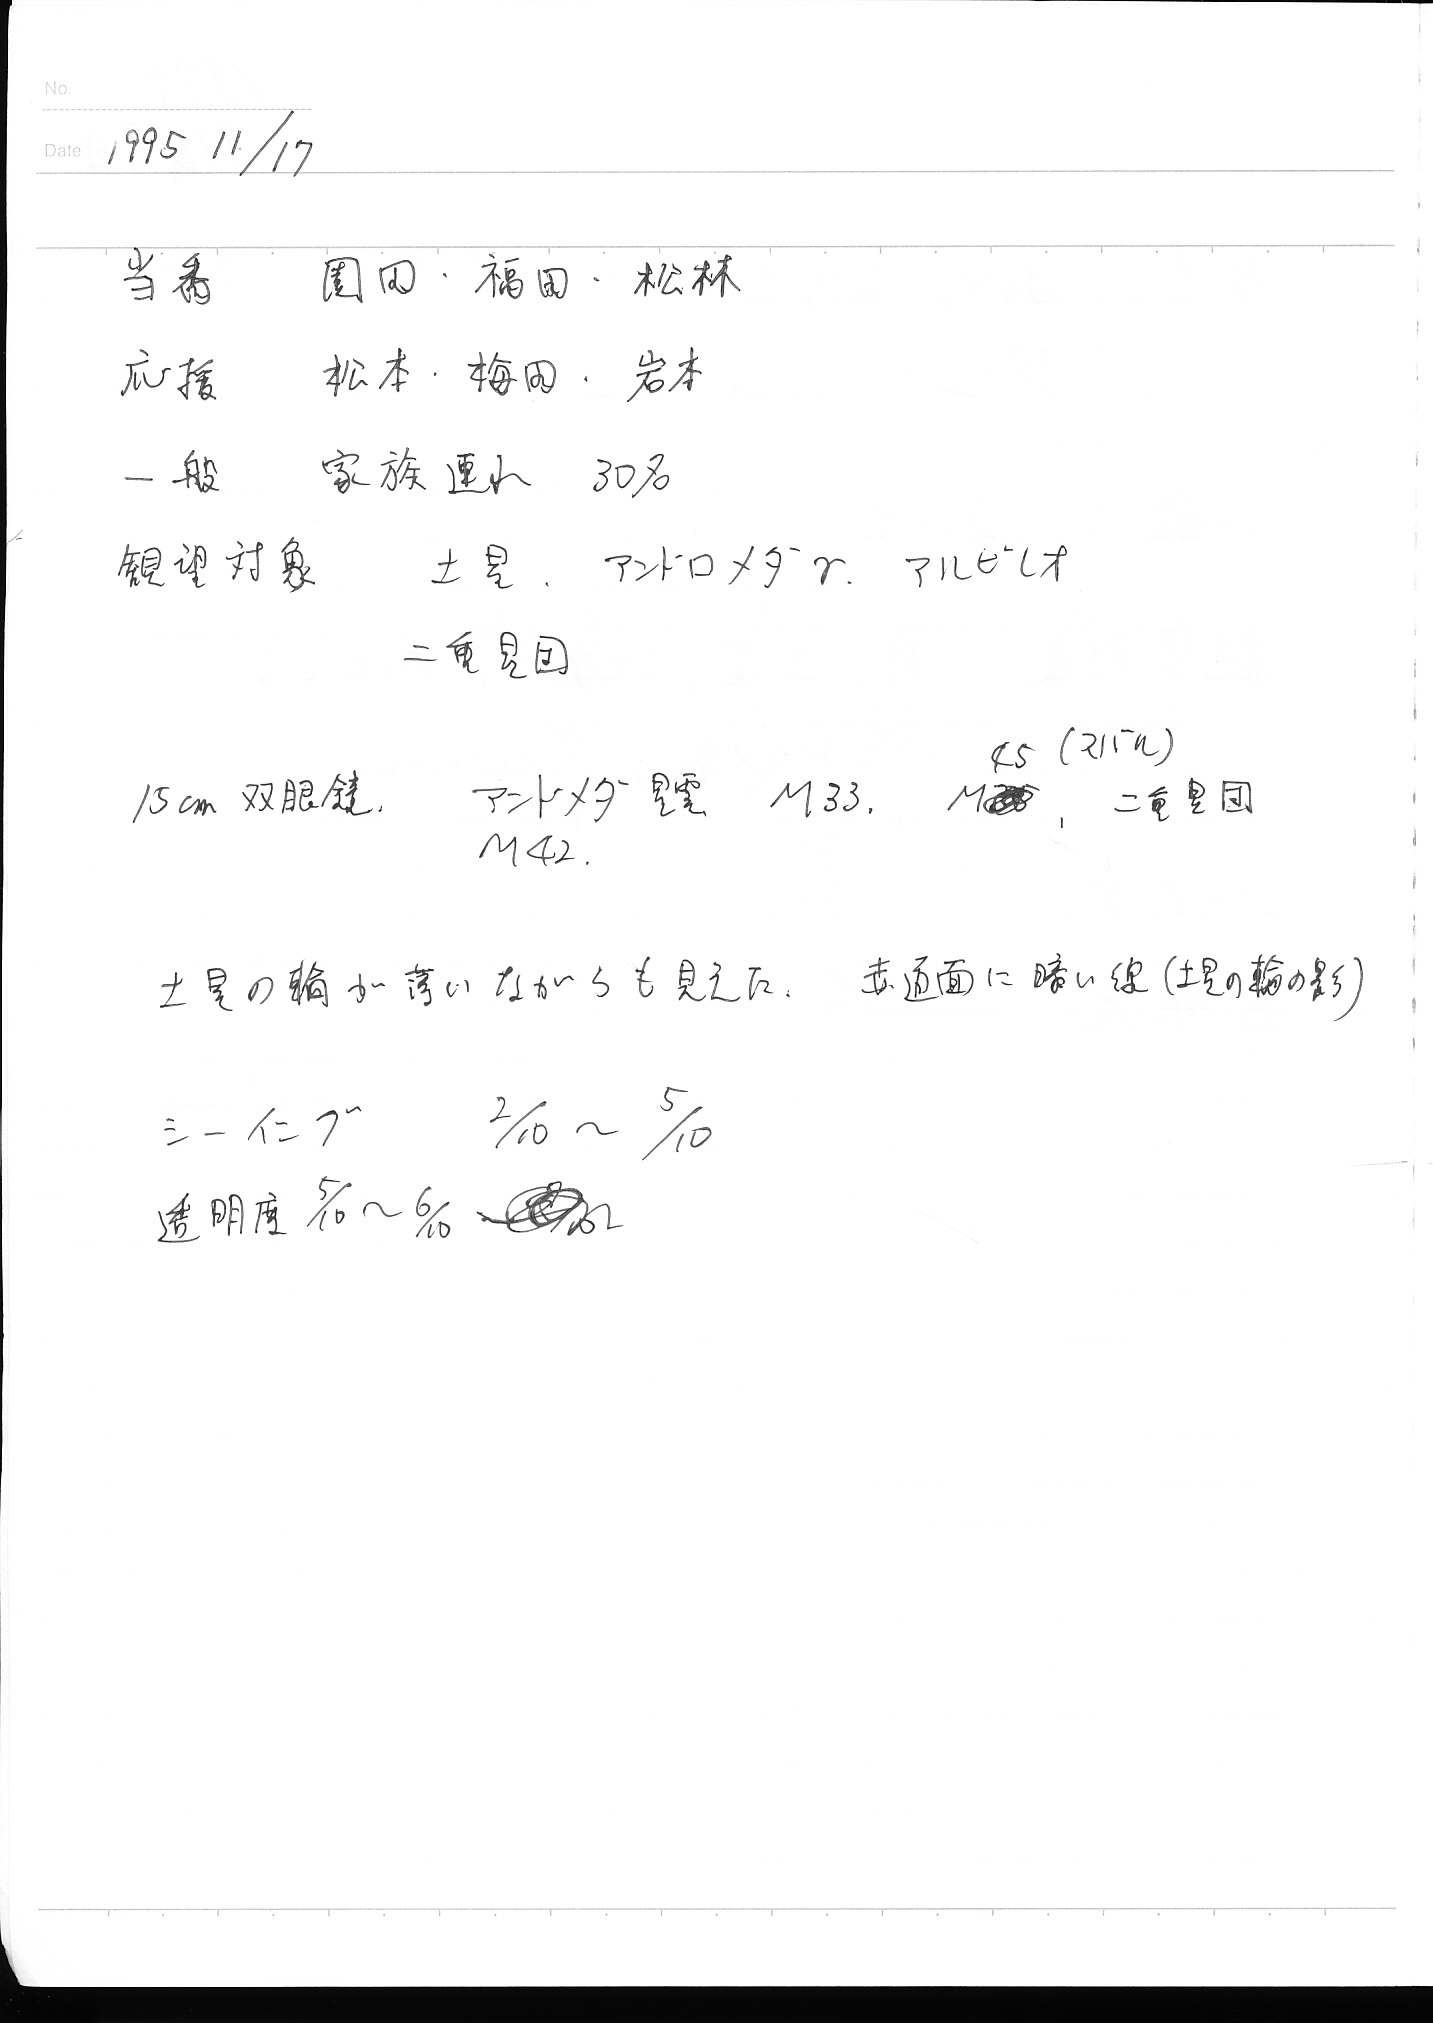 No.
Date 1995 11/17
当番 園田・福田・松林
応援 松本・梅田・岩本
一般 家族連れ 30名
観望対象 土星、アンドロメダγ、アルビレオ
二重星団
45 (スバル)
15cm 双眼鏡、 アンドメダ星雲 M33、 M 、二重星団
M42、
土星の輪が薄いながらも見えた、 赤道面に暗い線(土星の輪の影)
シーイング 2/10 〜 5/10
透明度 5/10 〜 6/10